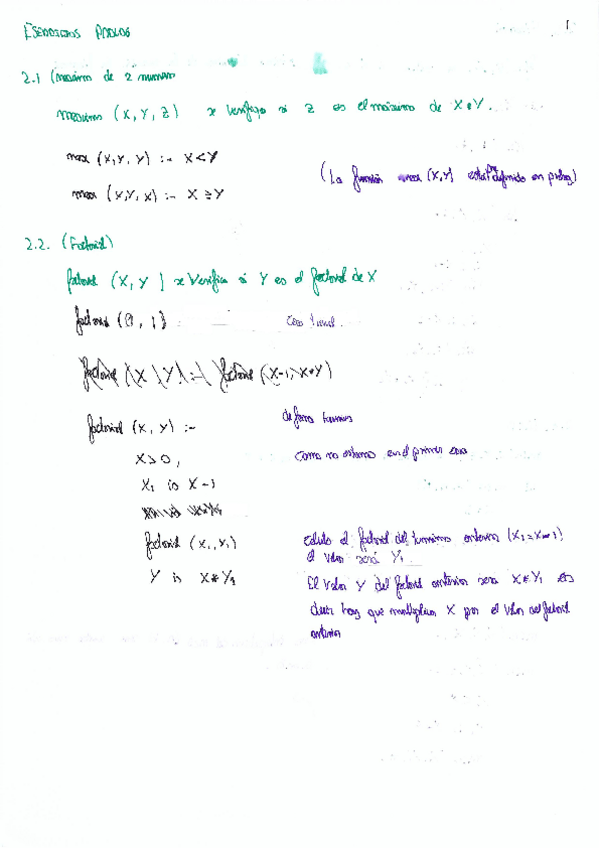 Ejercicios Prolog
1
2.1 (maximo de 2 numeros
maximo (X, Y, Z) se verifica si Z es el máximo de X e Y.
max (X,Y, Y) :- X < Y
(La función max (X,Y) está definido en prolog)
max (X,Y, X) :- X ≥ Y
2.2. (Factorial)
factorial (X, Y) se verifica si Y es el factorial de X
factorial (0, 1)
Caso
factorial (X, Y) :- factorial (X-1, X*Y)
factorial (X, Y) :-
de forma
X > 0,
Como no estamos en el primer caso
X₁ is X - 1
factorial (X₁, Y₁)
Calculo el factorial del termino anterior (X₁ = X - 1)
el valor será Y₁
Y is X * Y₁
El valor Y del factorial anterior sera X * Y₁ es
decir hay que multiplicar X por el valor del factorial
anterior